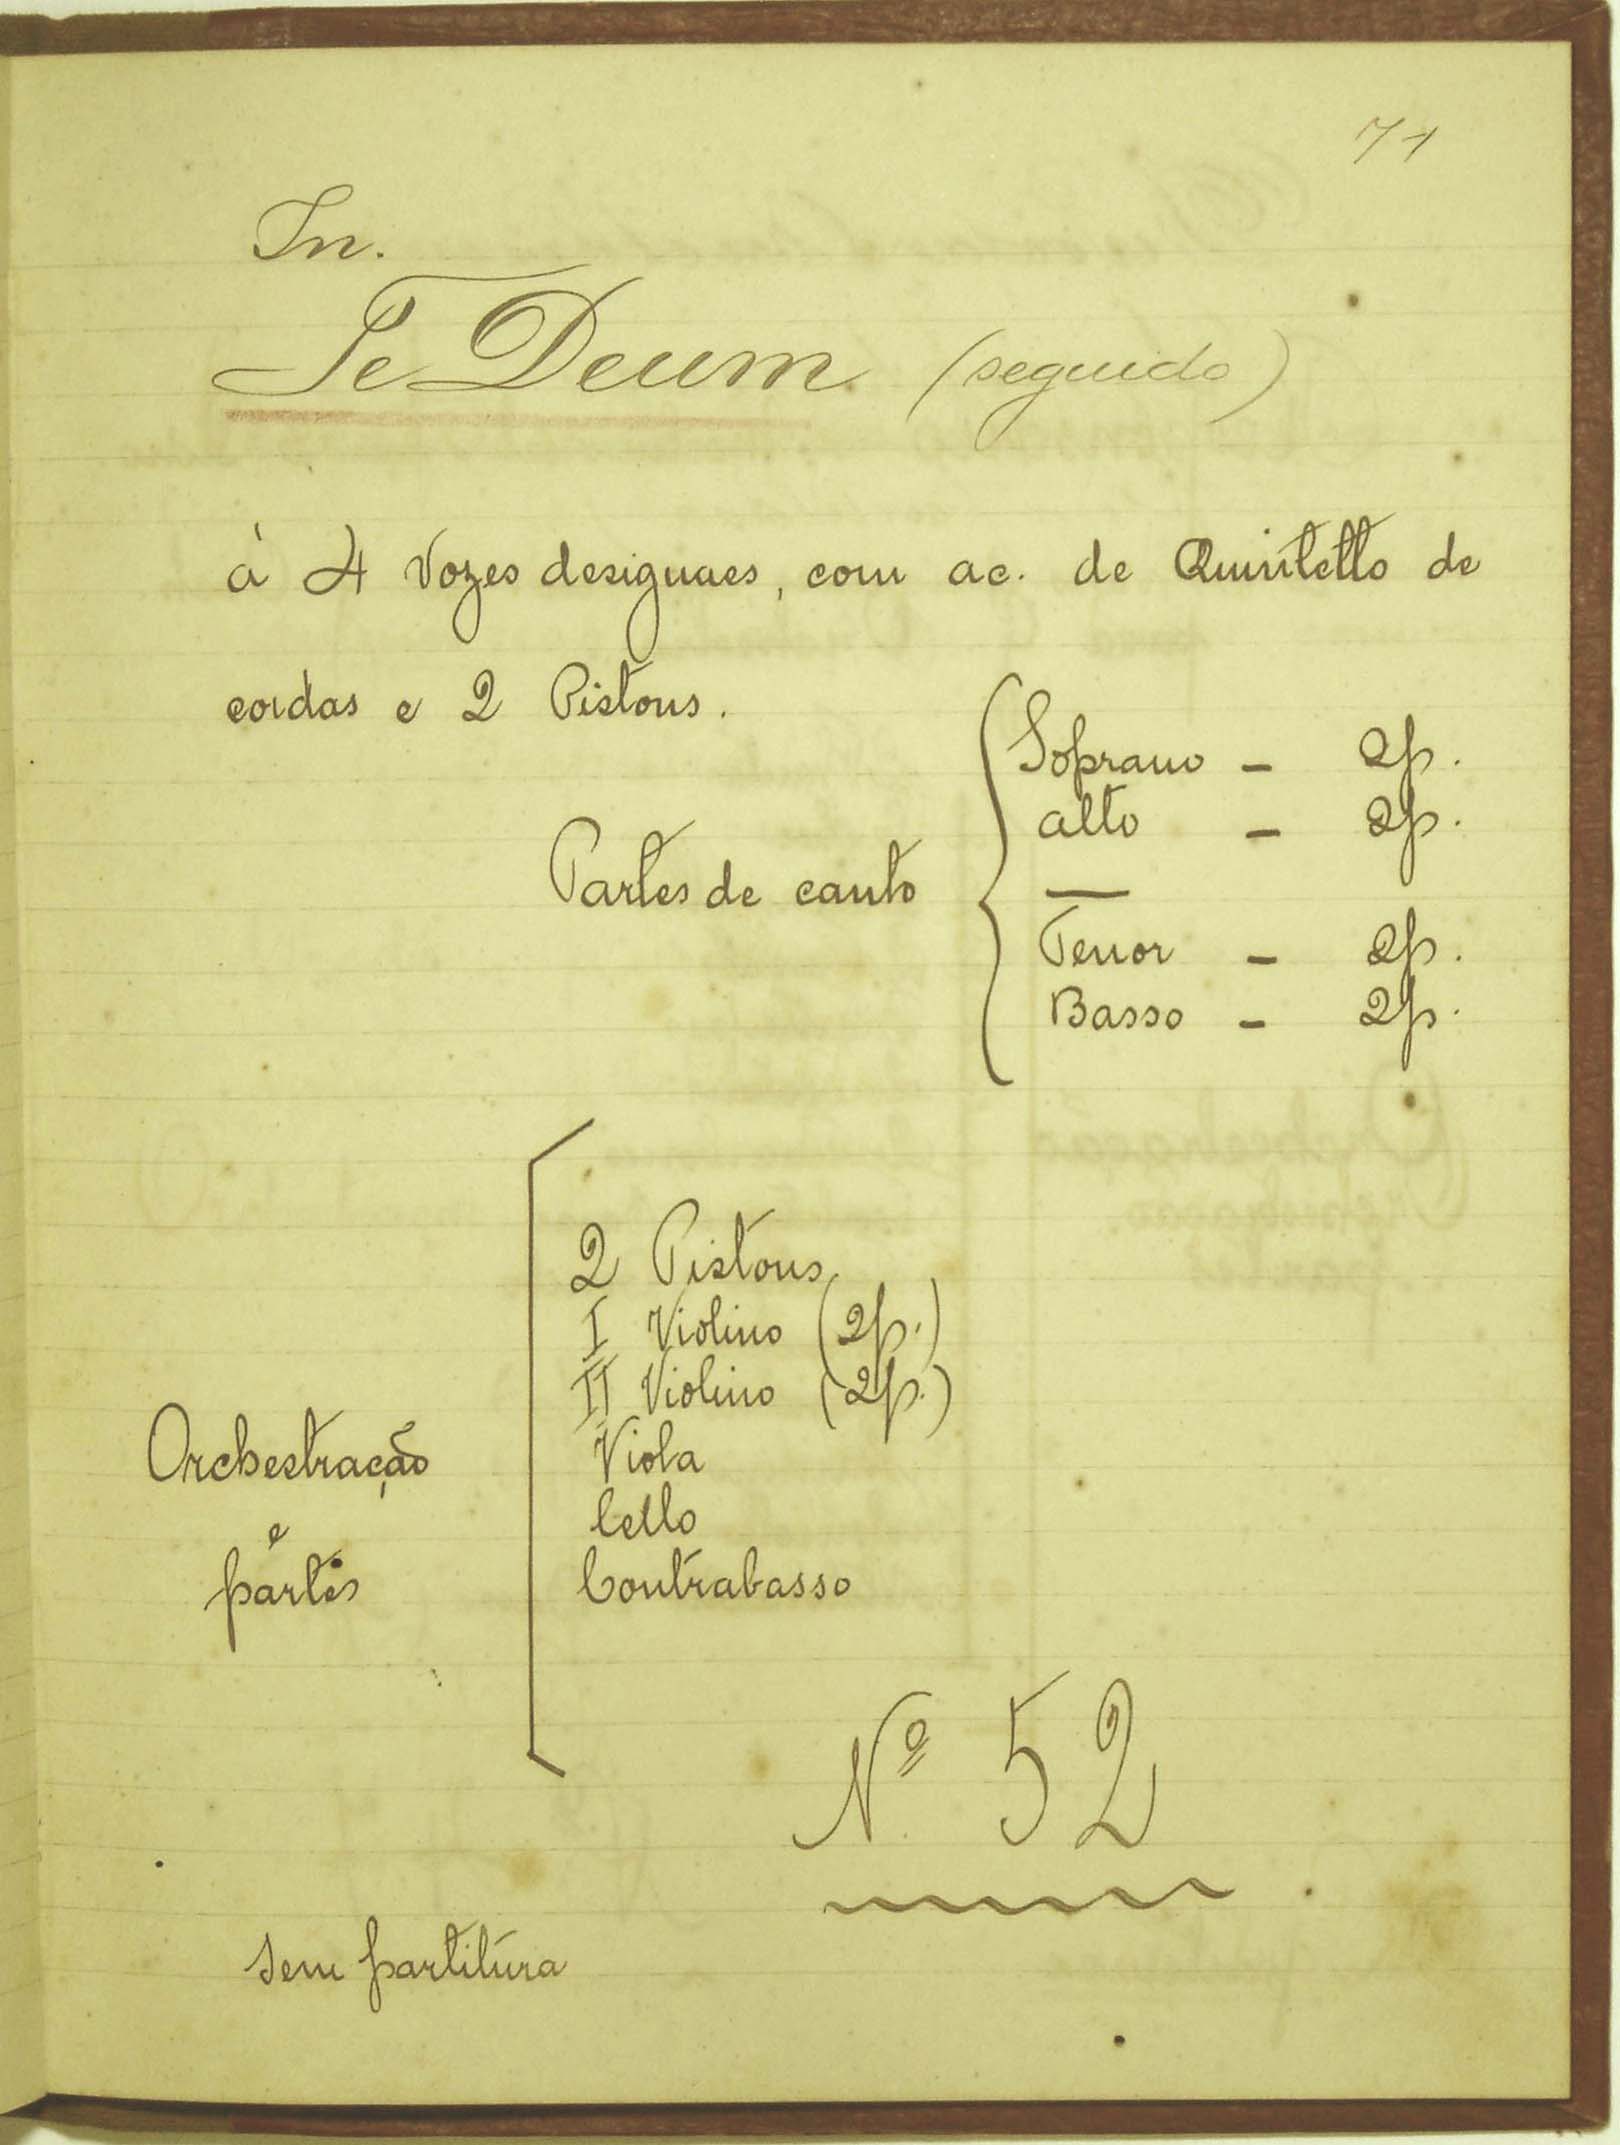 71
In.
Te Deum (seguido)
à 4 Vozes desiguaes, com ac. de Quintetto de
cordas e 2 Pistons.
Soprano - 2p.
alto - 2p.
Partes de canto
Tenor - 2p.
Basso - 2p.
2 Pistons
I Violino (2p.)
II Violino (2p.)
Viola
Orchestração
Cello
e
Contrabasso
partes
Nº 52
sem partitura